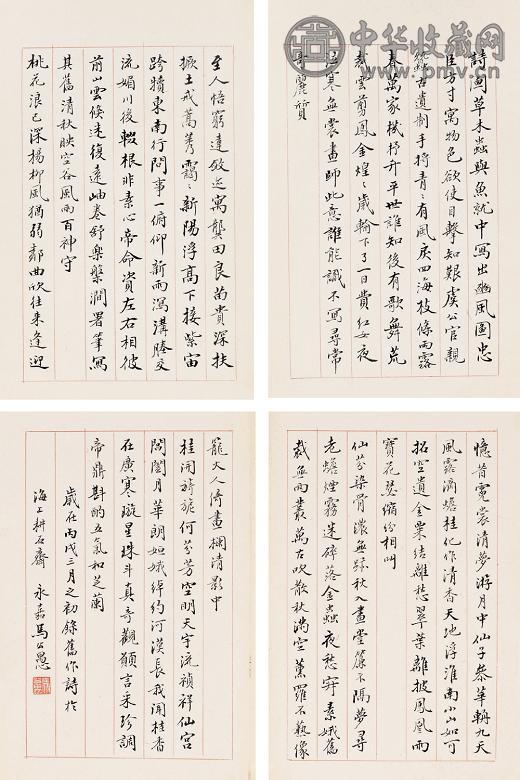 中华收藏网
www.pmv.cn
詩圖草木蟲與魚就中寫出豳風圖忠
臣方寸寓物色欲使目擊知艱虞公官親
古遺制手將青﹕有風戾四海枝條雨露
春萬家機杼升平世誰知後有歌舞荒
裁雲剪鳳金煌﹕歲輸下了一日費紅女夜
泣寒無裳畫師此意誰能識不寫尋常
奇麗質
至人悟窮達斂迹寓龔田良苗貴深扶
掀土戒蒿莠靄﹕新陽浮高下接紫宙
跨犢東南行問事一俯仰新雨瀉溝塍交
流媚川後輟根非素心帝命賁左右相彼
前山雲倏迷復遠岫卷舒樂槃澗署筆寫
其舊清秋映空谷風雨百神守
桃花浪已深楊柳風猶弱鄰曲欣往來逢迎
憶昔霓裳清夢游月中仙子泰華輈九天
風露滴蟾桂化作清香天地浮淮南小山如可
招空遺金粟結離愁翠葉離披鳳凰雨
寶花瑟縮紛相叫
仙芬染骨濃無跡秋入畫堂簾不隔夢尋
老蟾煙霧迷碎落金蟲夜愁素娥舊
裁無兩叢萬古吹散秋滿空薰羅不熱像
籠大人倚畫欄清影中
桂開詩旎何芬芳空明天宇流禎祥仙宮
閶闔月華朗姮娥綽約河漢長我聞桂香
在廣寒璇星珠斗真奇觀願言采珍調
帝鼎斟酌五氣和芝蘭
歲在丙戌三月之初錄舊作詩於
海上耕石齋 永嘉馬公愚